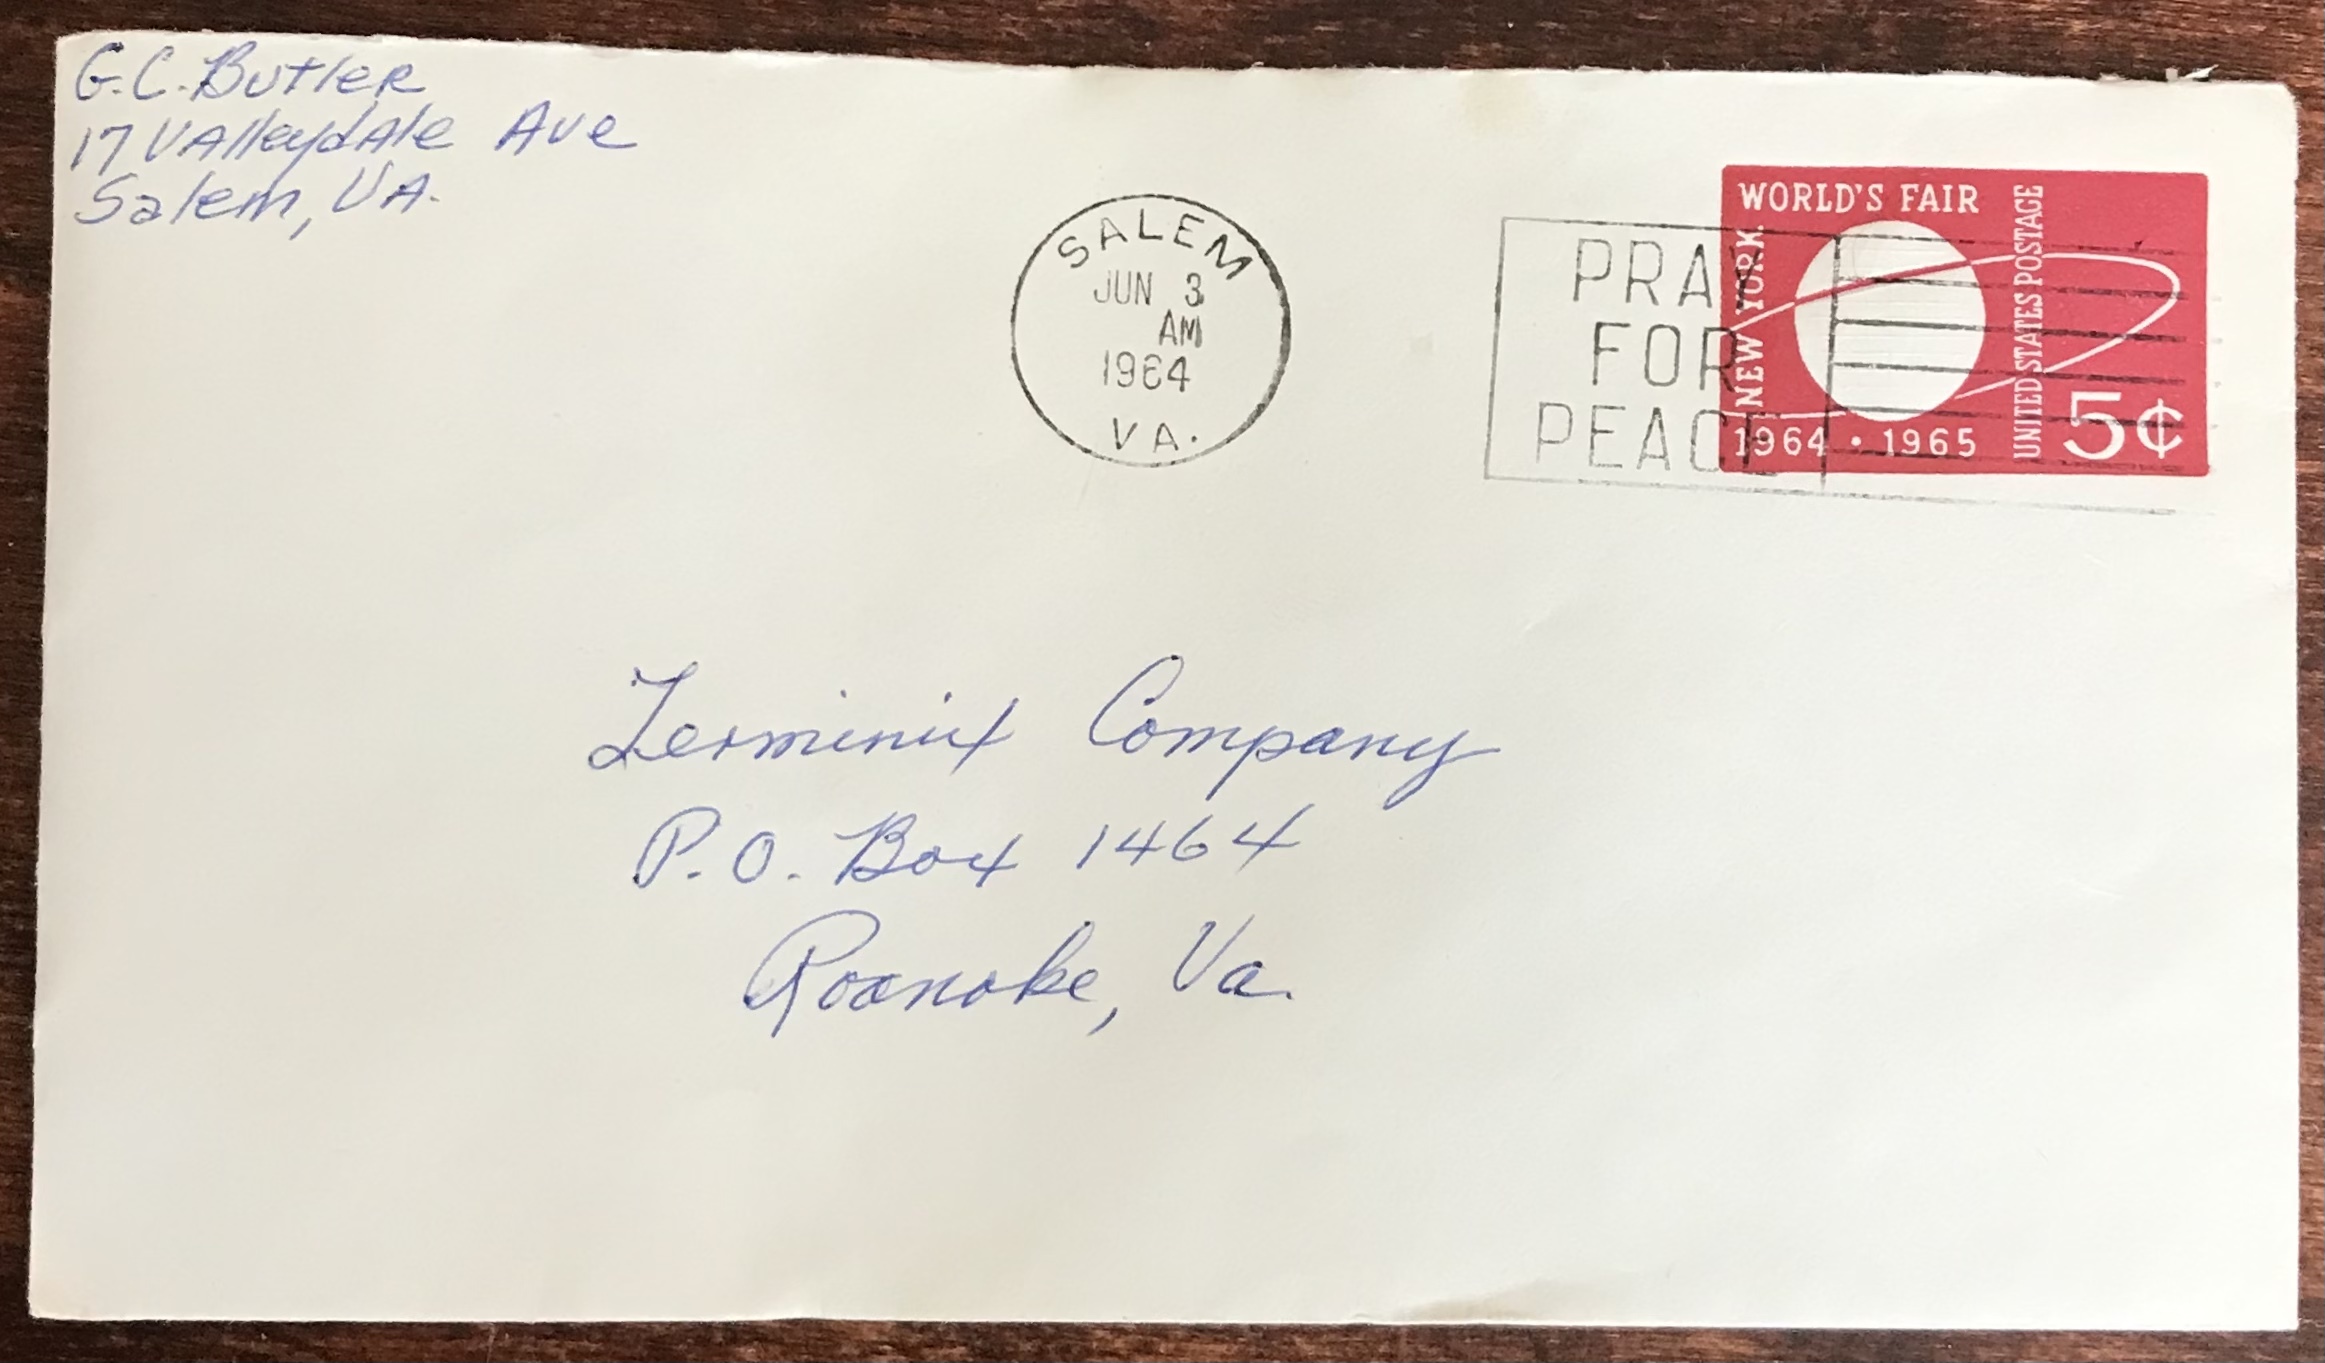 G.C. Butler
17 Valleydale Ave
Salem, VA.
SALEM
JUN 3
AM
1964
VA.
PRAY
FOR
PEACE
WORLD'S FAIR
NEW YORK
1964 · 1965
UNITED STATES POSTAGE
5¢
Terminix Company
P.O. Box 1464
Roanoke, Va.